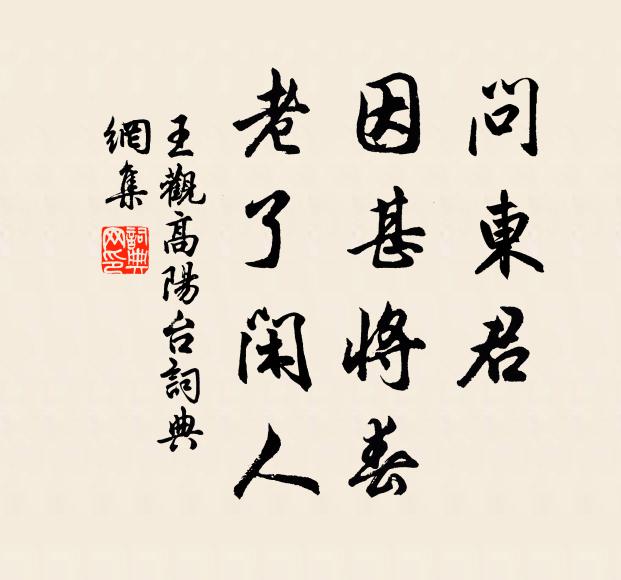 問東君
因甚將春
老了閑人
王觀高陽台詞典
網集
詞典
网印